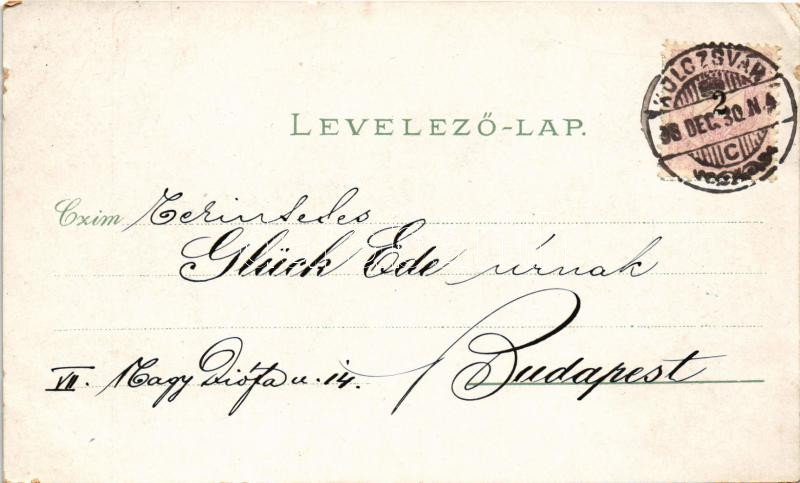 LEVELEZŐ-LAP.
KOLOZSVÁR
2
98 DEC. 30. N. 4
C
Czim Tekintetes
Glück Ede úrnak
VII. Nagy Diófa u. 14. Budapest